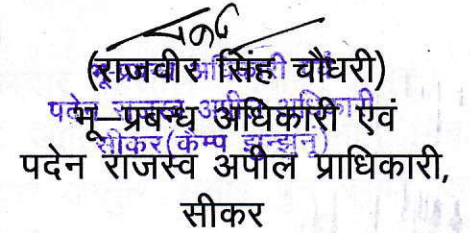 (राजवीर सिंह चौधरी)
भू–प्रबन्ध अधिकारी एवं
पदेन राजस्व अपील प्राधिकारी,
सीकर
भू प्रबन्ध अधिकारी एवं
पदेन राजस्व अपील अधिकारी
सीकर (केम्प झुन्झुनू)